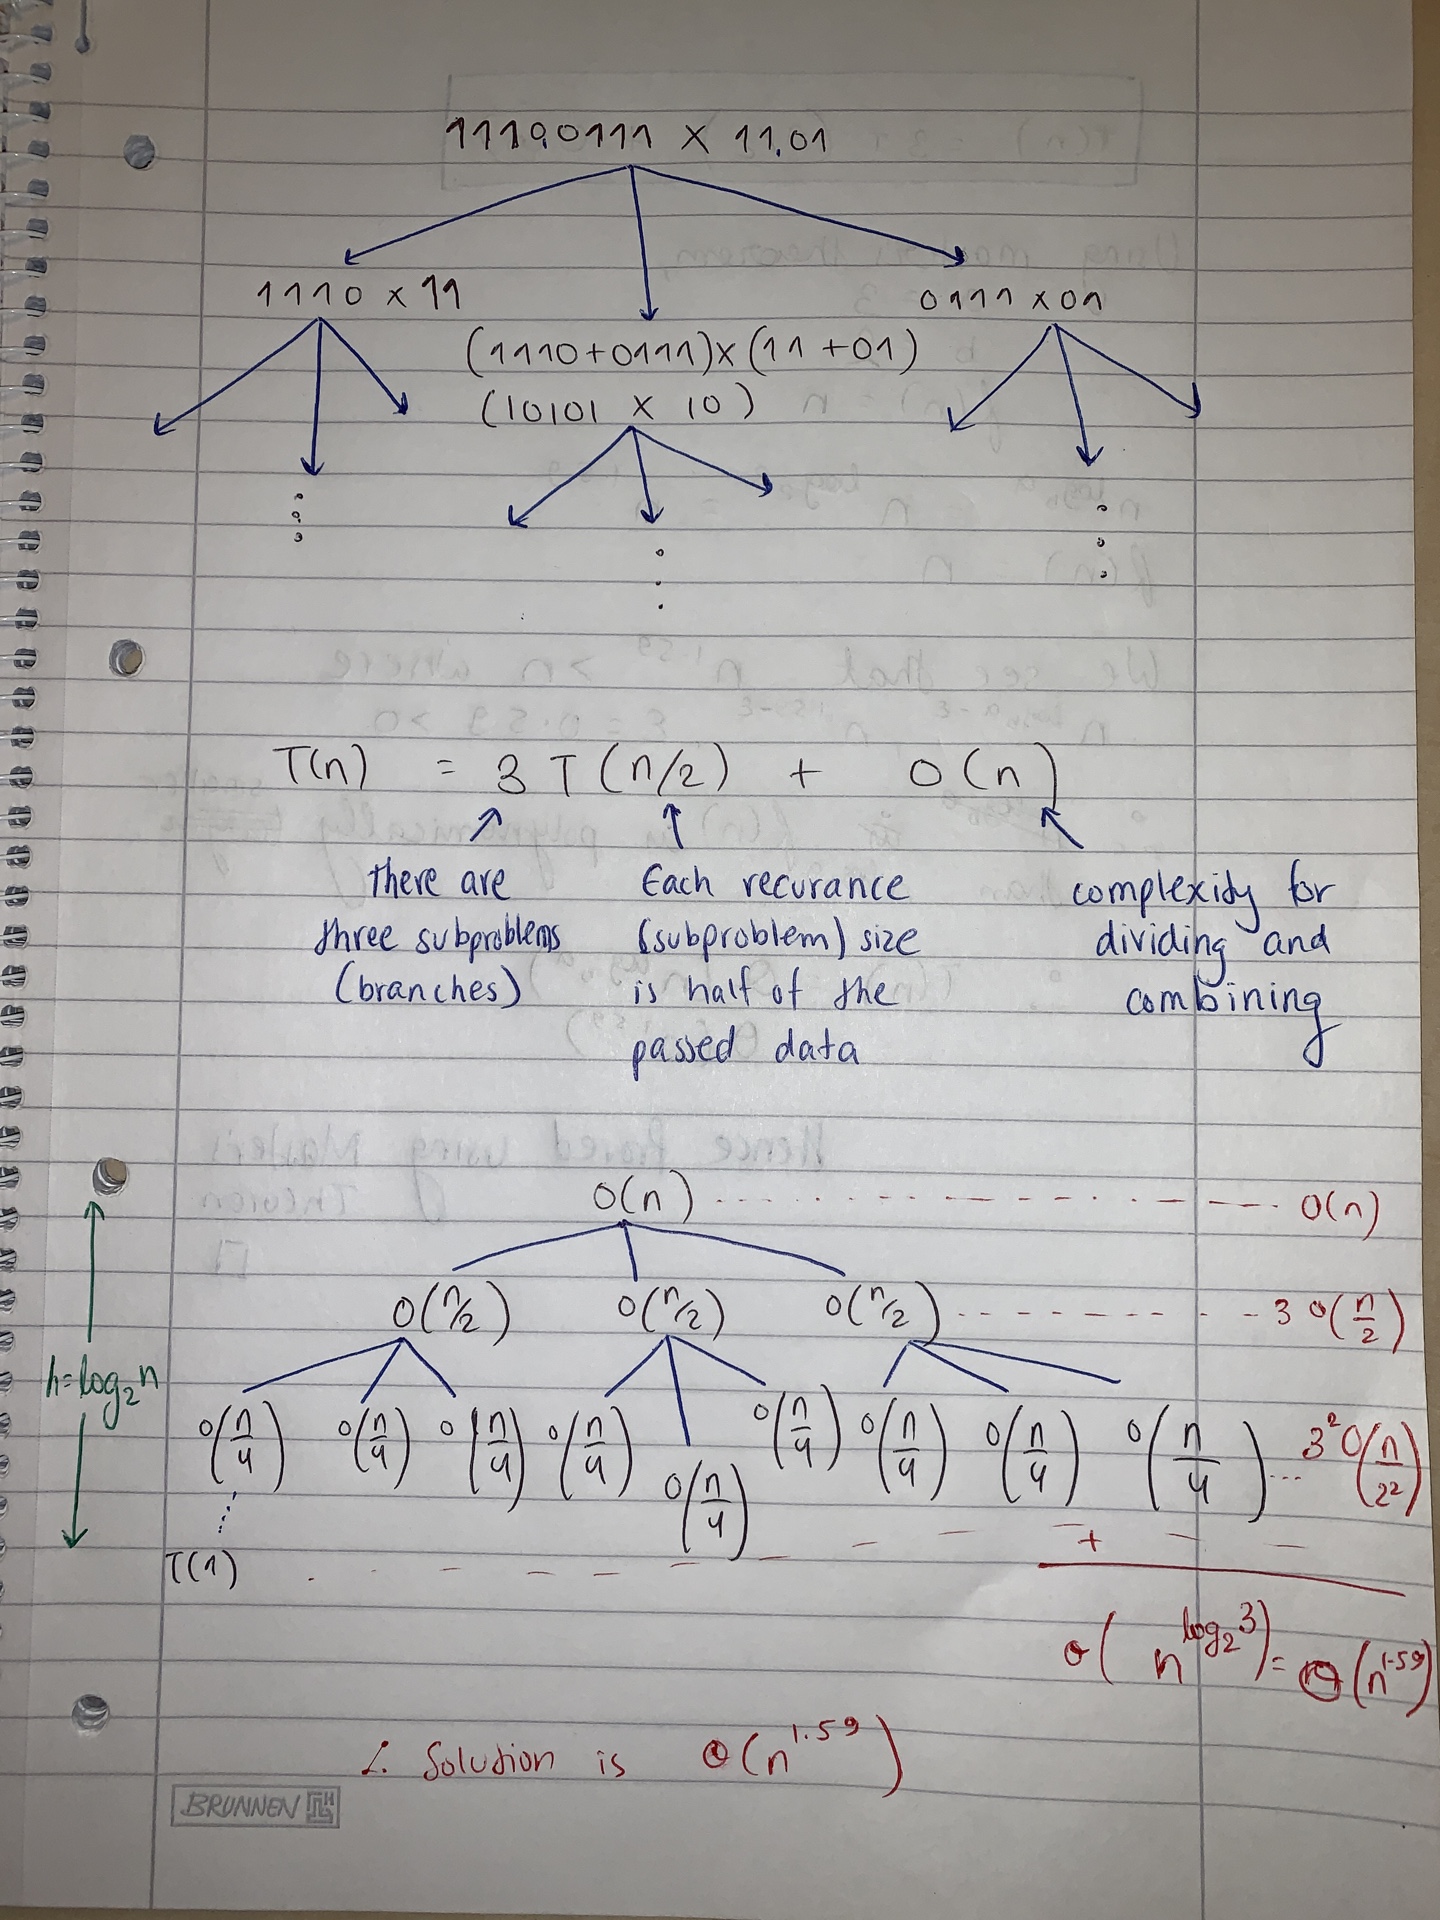 1110,0111 × 11,01
1110 × 11
0111 × 01
(1110+0111)×(11+01)
(10101 × 10)
T(n) = 3 T (n/2) + O(n)
there are three subproblems (branches)
Each recurance (subproblem) size is half of the passed data
complexity for dividing and combining
O(n) ........ O(n)
O(n/2) O(n/2) O(n/2) ........ 3 O(n/2)
h=log₂n
O(n/4) O(n/4) O(n/4) O(n/4) O(n/4) O(n/4) O(n/4) O(n/4) O(n/4) ... 3² O(n/2²)
+
T(1)
Θ(n^log₂3) = Θ(n^1.59)
∴ Solution is Θ(n^1.59)
BRUNNEN